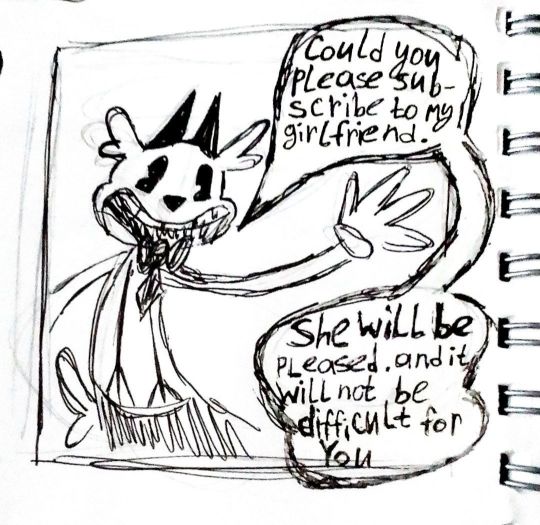 Could you
please sub-
scribe to my
girlfriend.
She will be
pleased. and it
will not be
difficult for
You